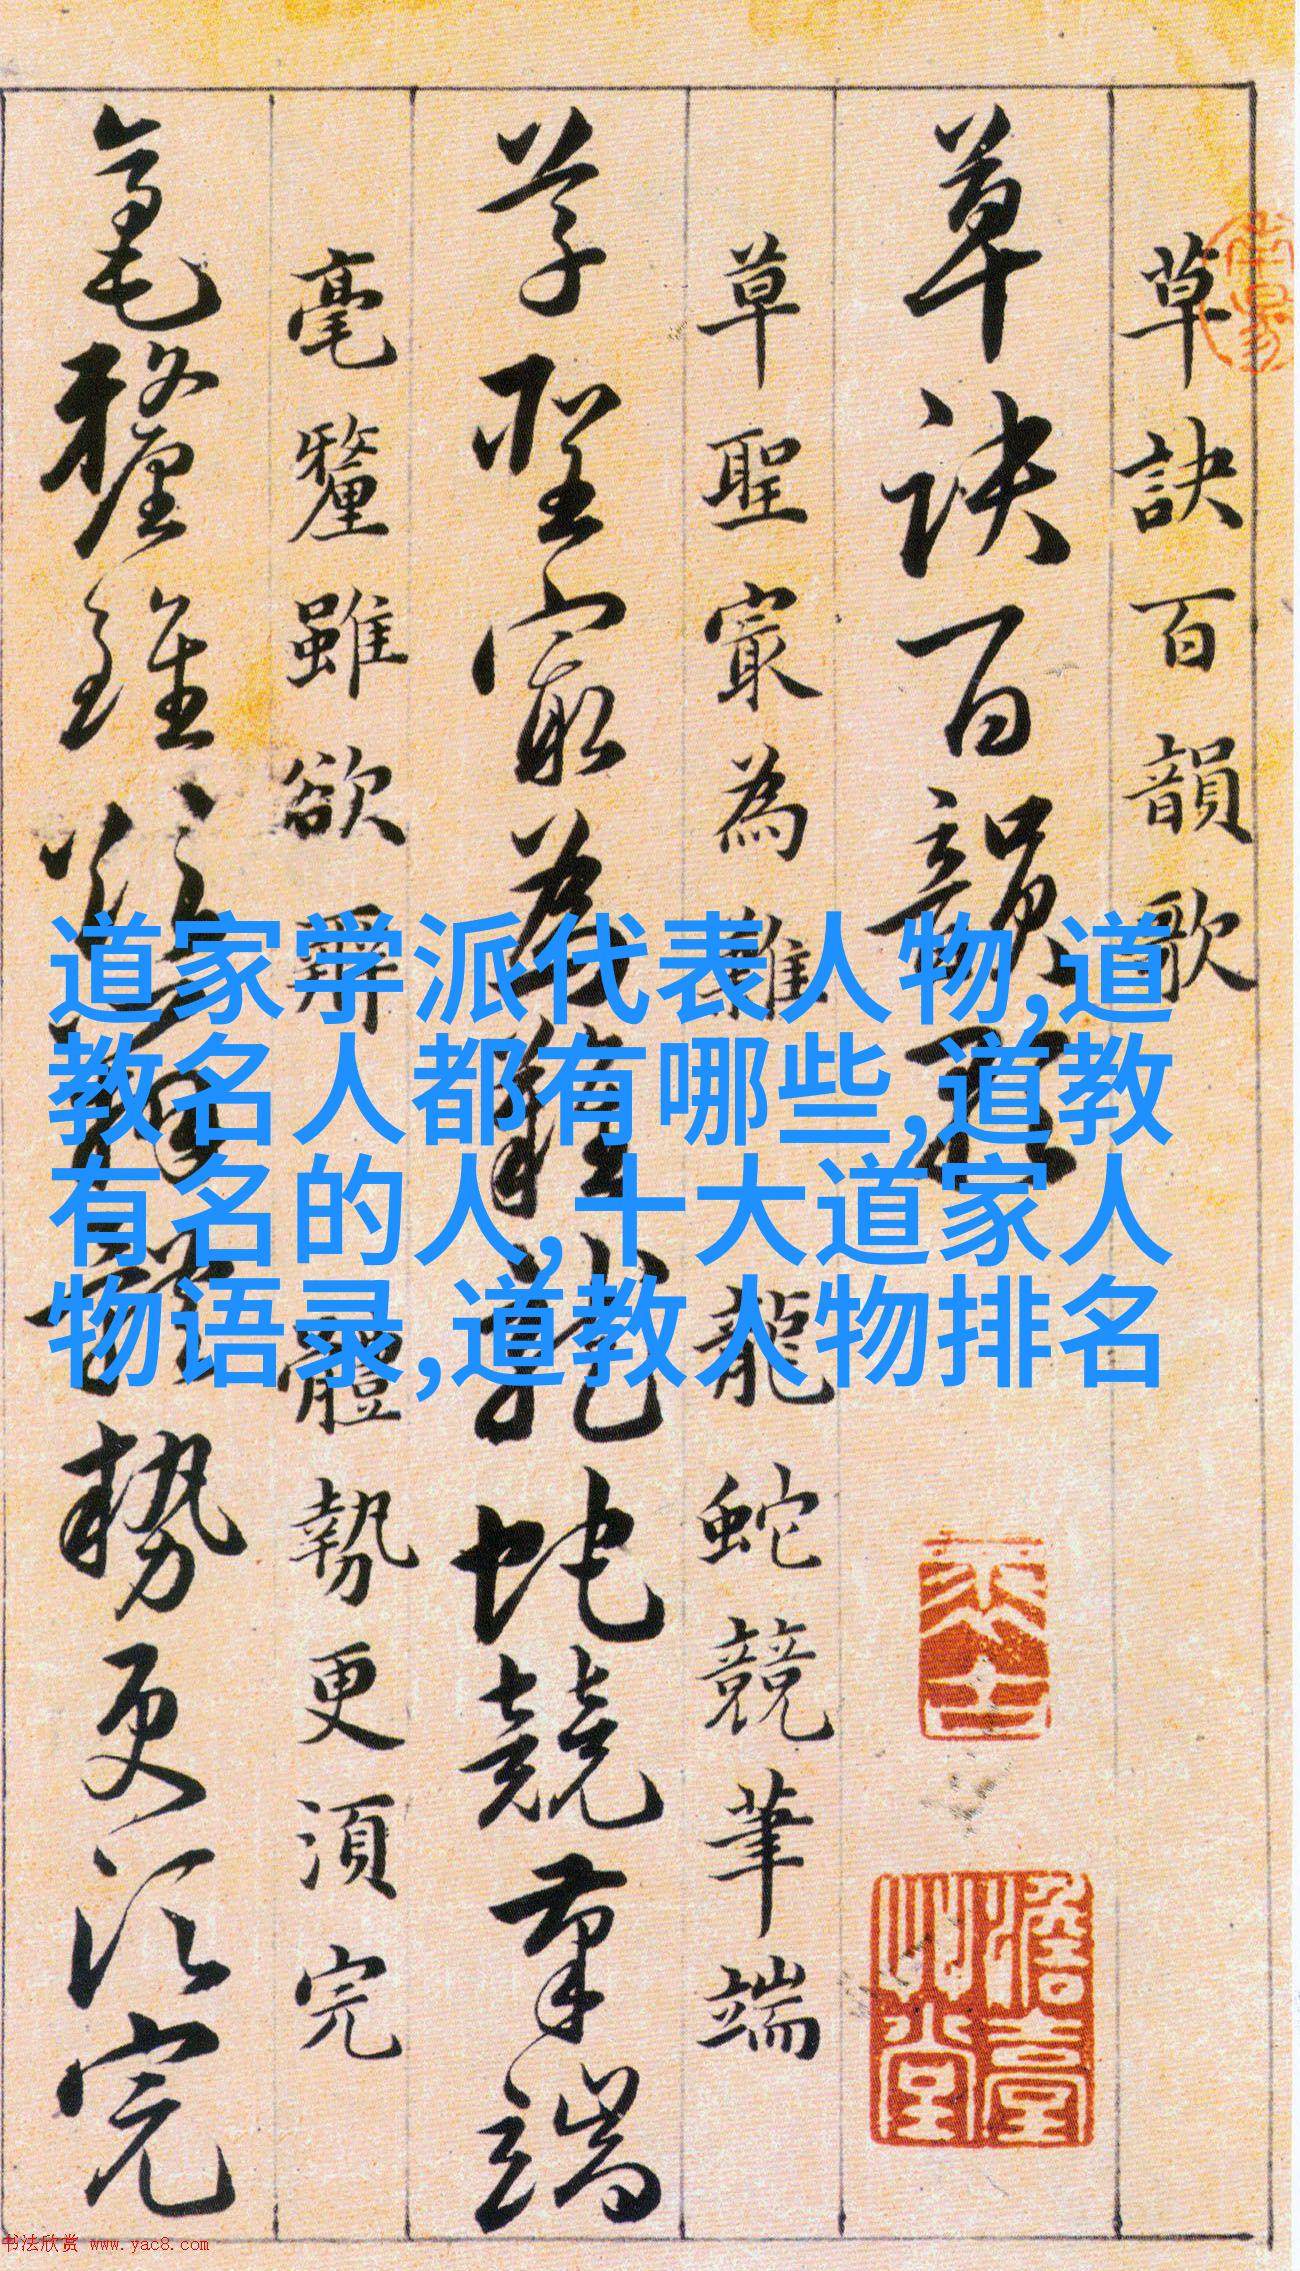 草訣百韻歌
草訣百韻歌
草聖寂為難龍蛇競筆端
草聖寂為難龍蛇競筆端
毫釐雖欲辨體勢更須完
毫釐雖欲辨體勢更須完
道家学派代表人物,道
教名人都有哪些,道教
有名的人,十大道家人
物语录,道教人物排名
书法欣赏 www.yac8.com